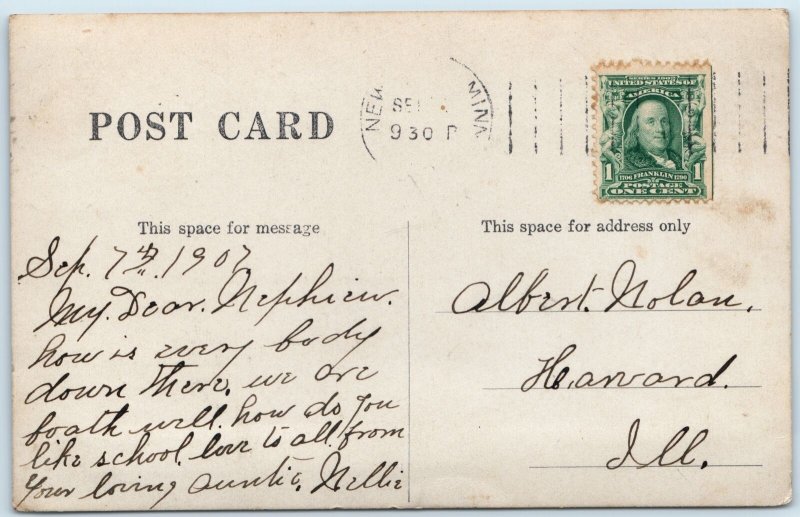 POST CARD
NEW
MINN
SE
930 P
SERIES 1902
UNITED STATES OF
AMERICA
1
1706 FRANKLIN 1790
POSTAGE
ONE CENT
1
This space for message
This space for address only
Sep. 7th. 1907
My. Dear. Nephiew.
how is every body
down there. we are
boath well. how do you
like school. love to all. from
Your loving auntie. Nellie
Albert. Nolan.
Harvard.
Ill.